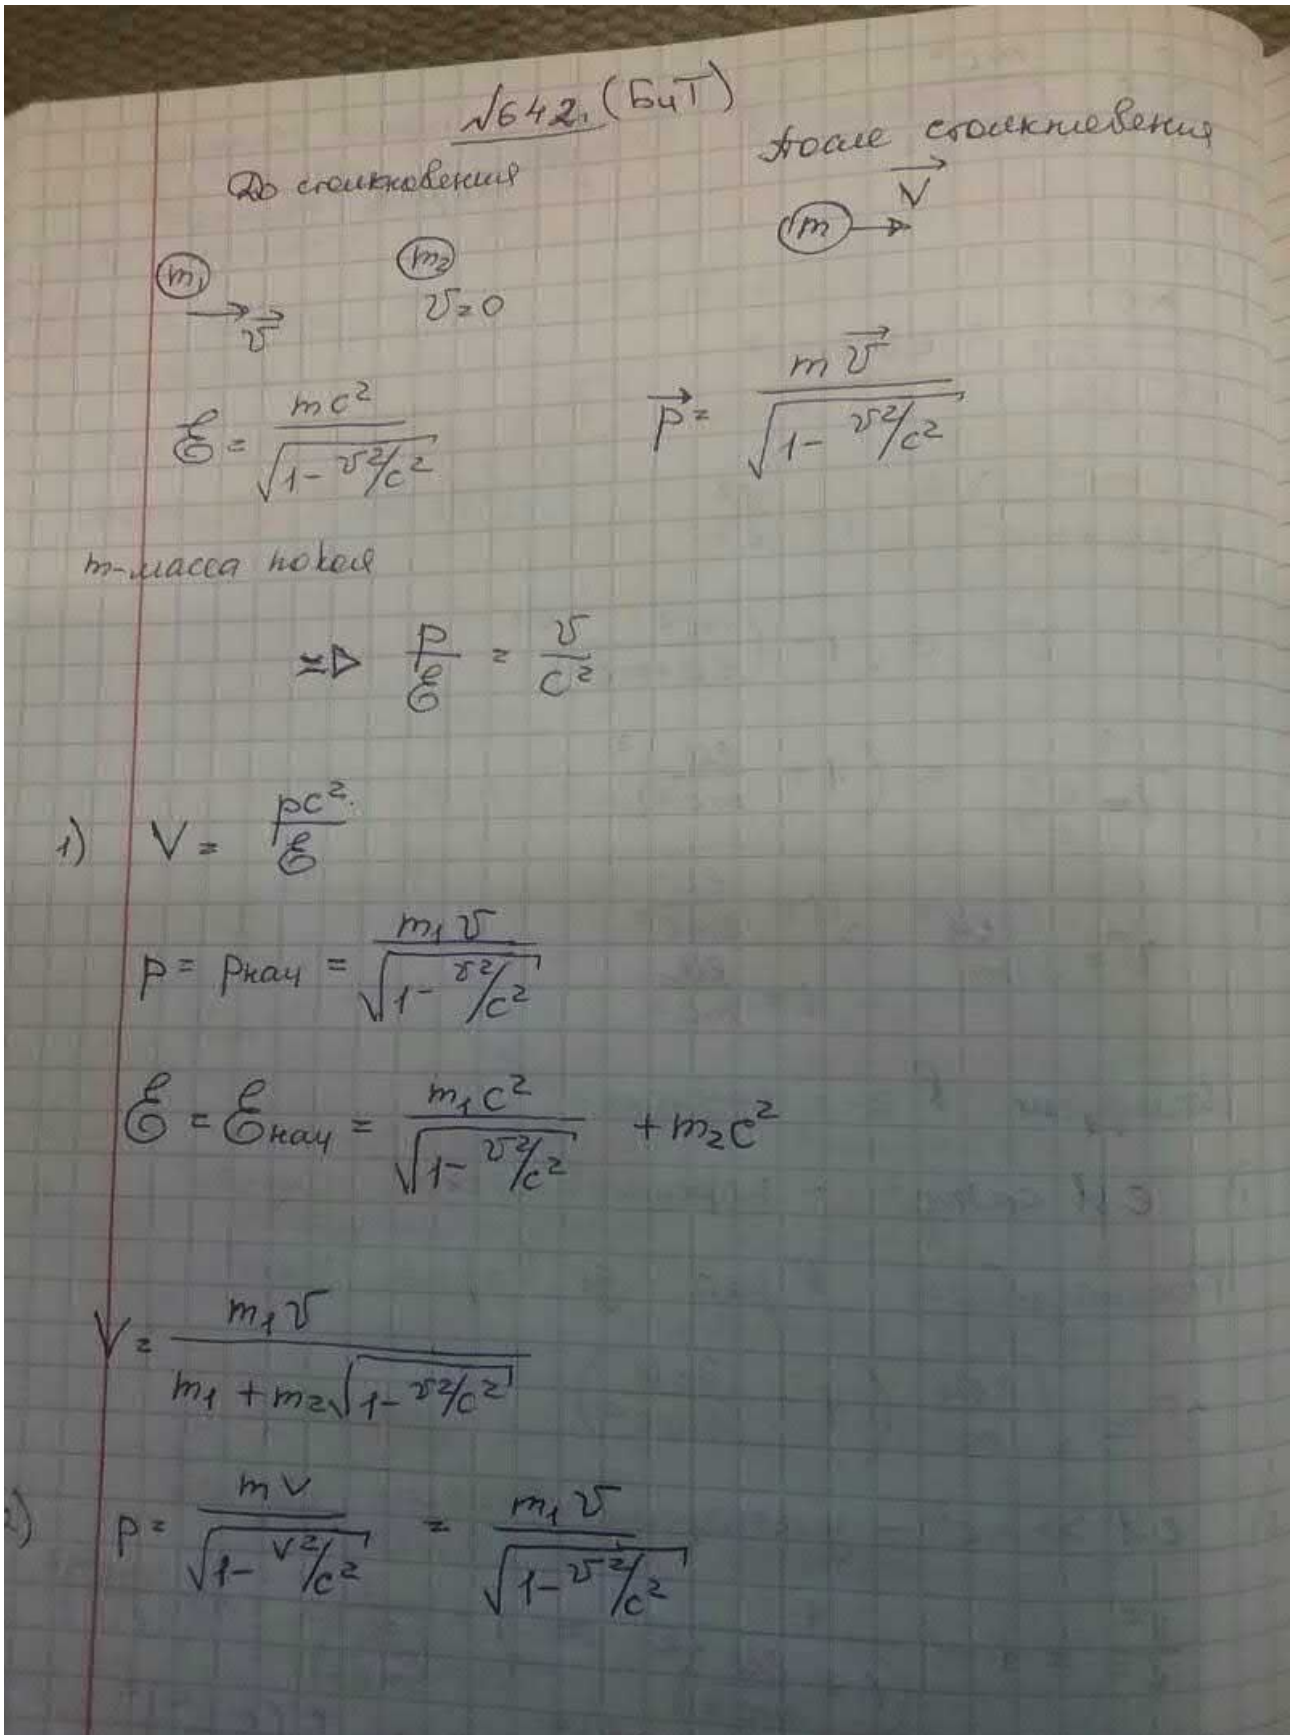 №642. (БиТ)
До столкновения
После столкновения
V⃗
m₁
m₂
m
v⃗
v=0
ℰ = mc² / √(1 - v²/c²)
p⃗ = m v⃗ / √(1 - v²/c²)
m-масса покоя
=> p/ℰ = v/c²
1) V = pc²/ℰ
p = pнач = m₁v / √(1 - v²/c²)
ℰ = ℰнач = m₁c² / √(1 - v²/c²) + m₂c²
V = m₁v / (m₁ + m₂√(1 - v²/c²))
2) p = mV / √(1 - V²/c²) = m₁v / √(1 - v²/c²)